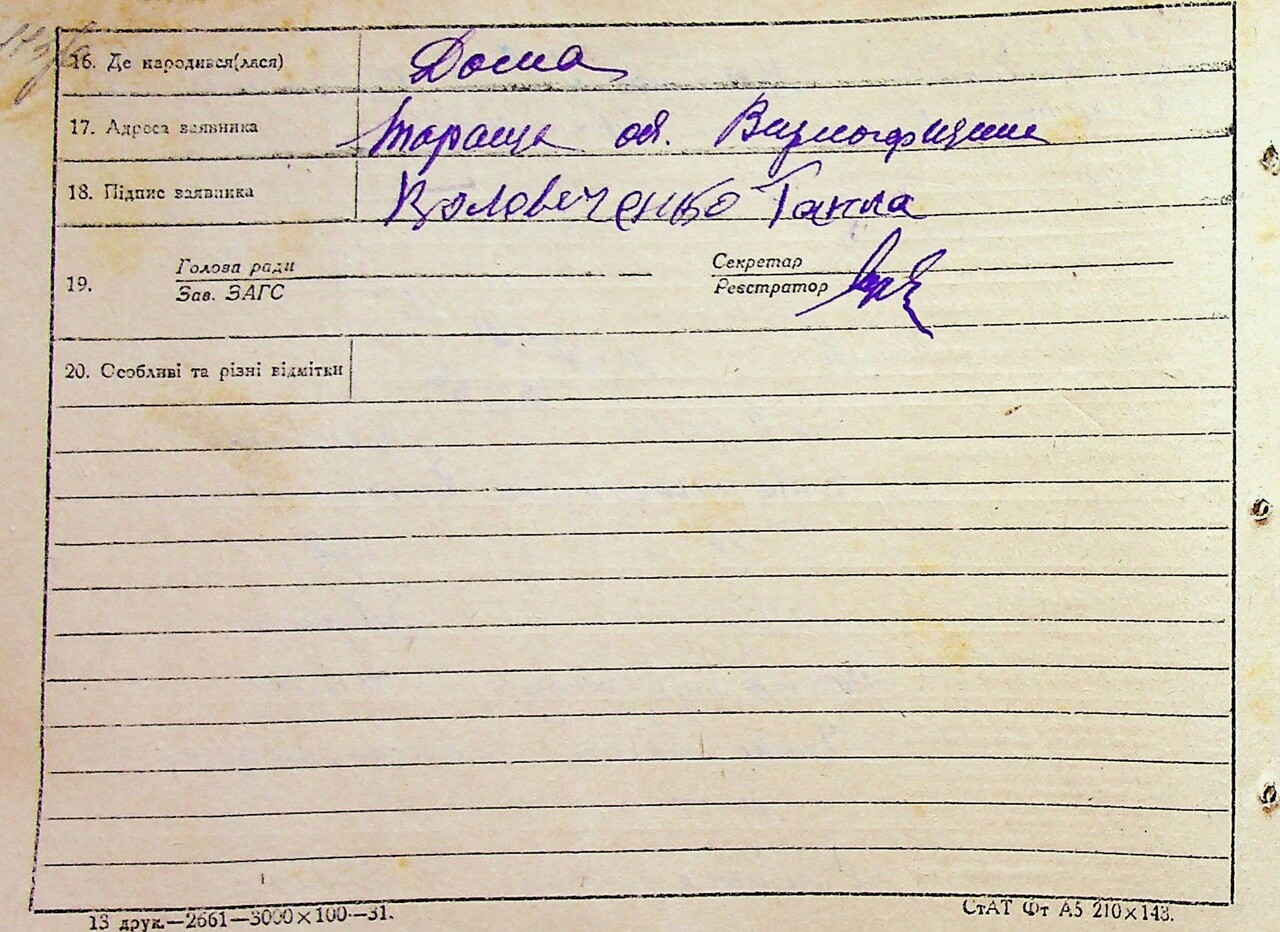 16. Де народився(лася) Дома
17. Адреса заявника Тараща
18. Підпис заявника Ганна
19. Голова ради Секретар
Зав. ЗАГС Реєстратор
20. Особливі та різні відмітки
13 друк.—2661—3000×100—31. СтАТ Фт А5 210×148.